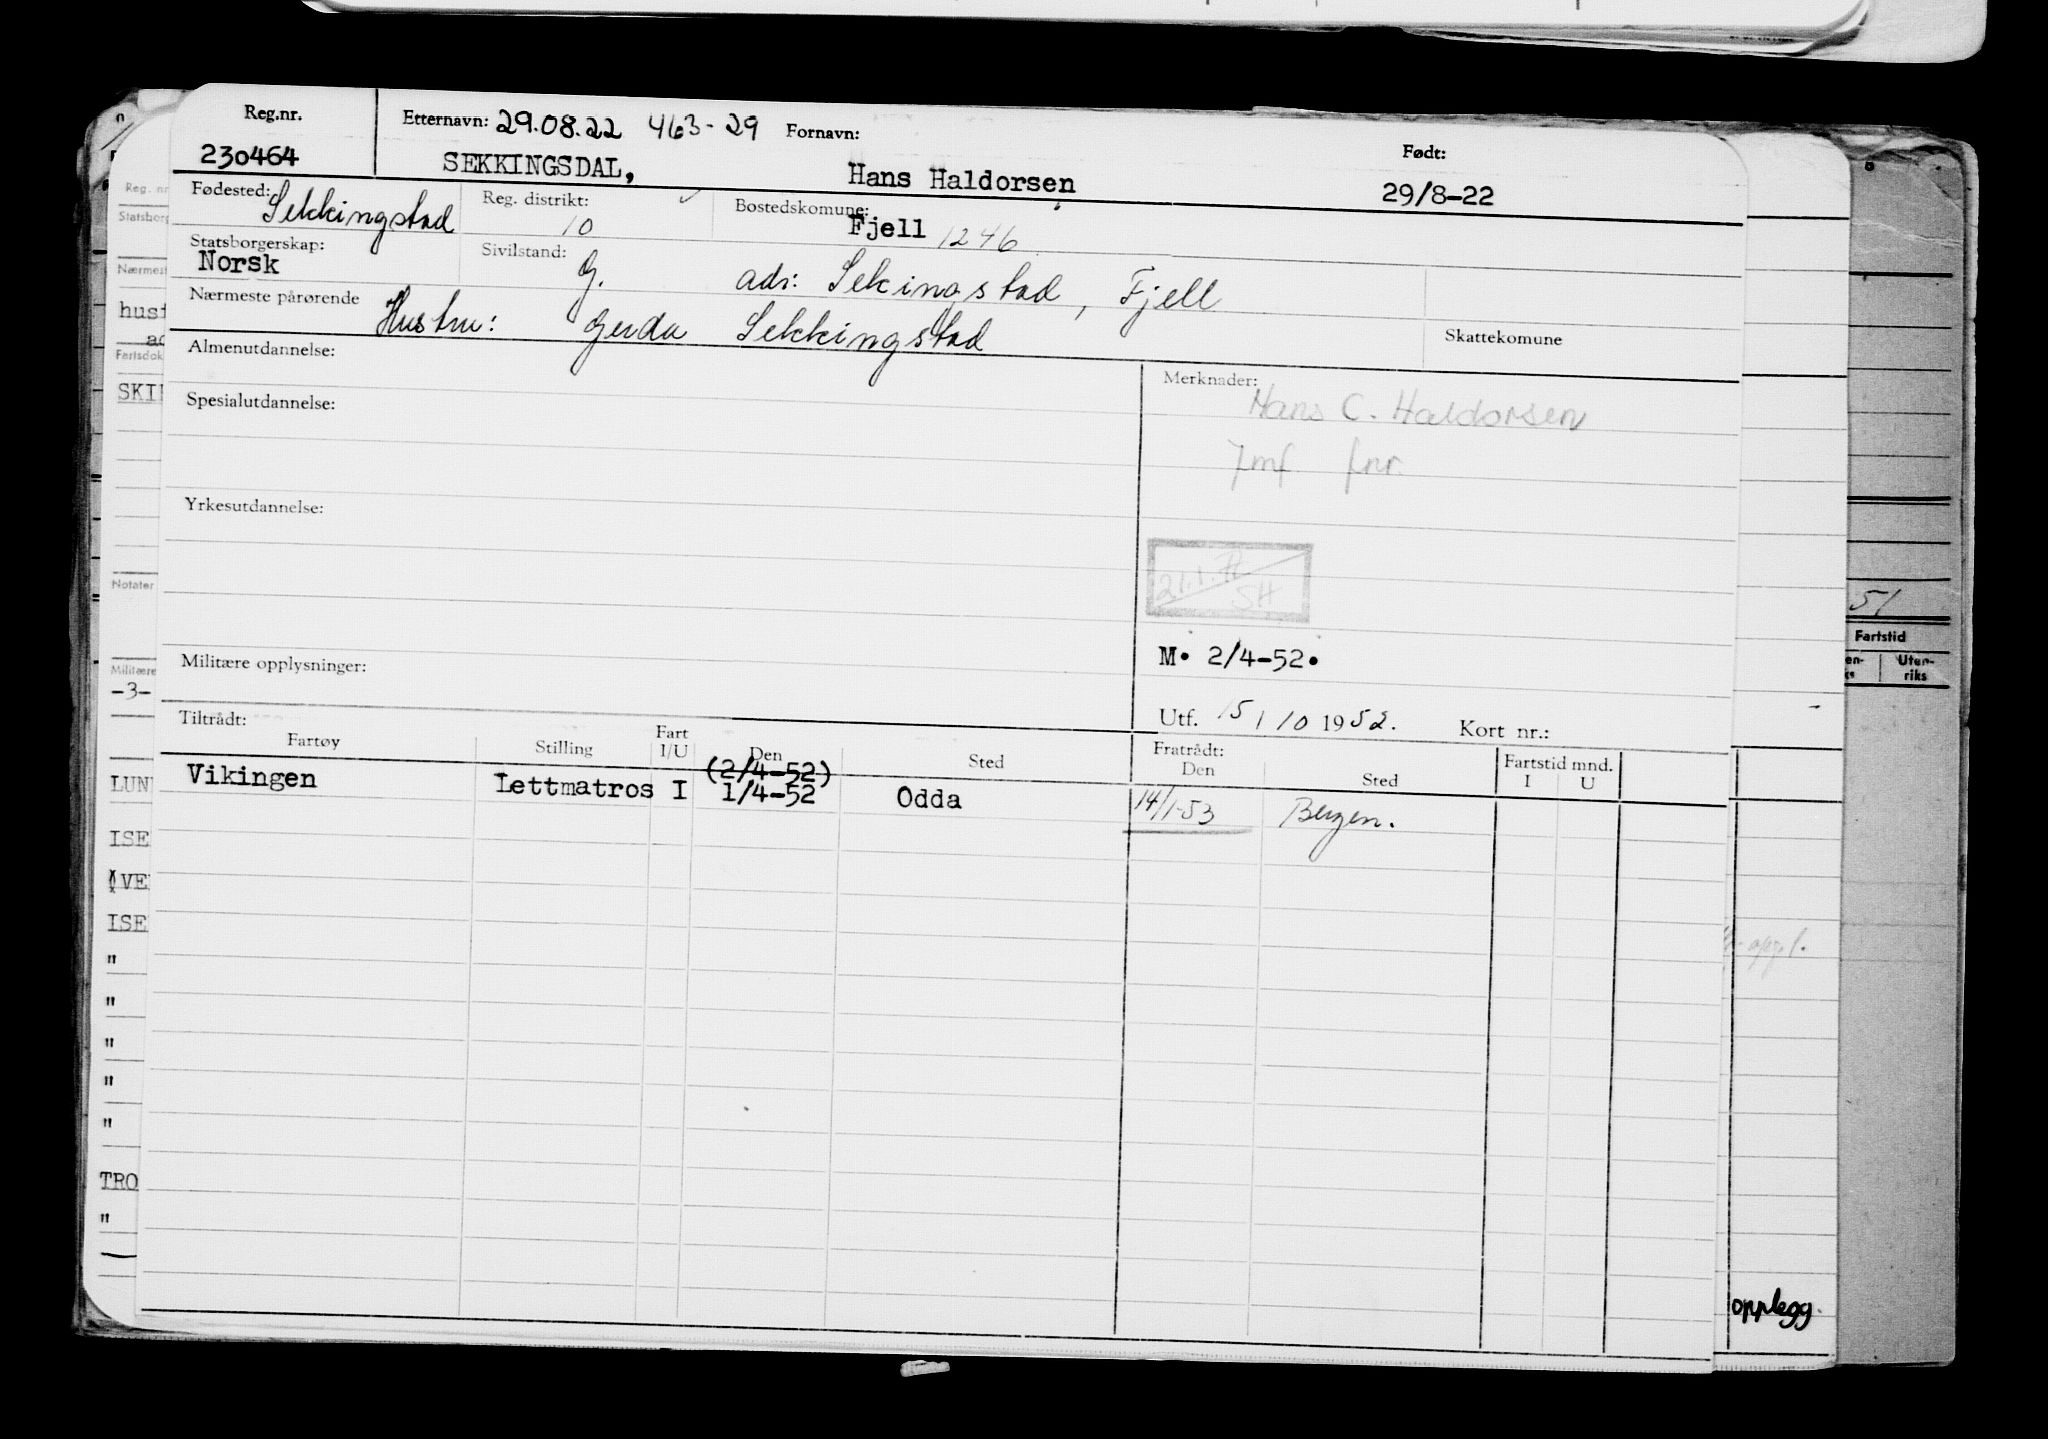 Reg.nr. Etternavn: 29.08.22 463-29 Fornavn: Født:
230464 SEKKINGSDAL, Hans Haldorsen 29/8-22
Fødested: Sekkingstad Reg. distrikt: 10 Bostedskomune: Fjell 1246
Statsborgerskap: Norsk Sivilstand: G. adr: Sekingstad, Fjell
Nærmeste pårørende Hustru: Gerda Sekkingstad Skattekomune
Almenutdannelse: Merknader:
Hans C. Haldorsen
Spesialutdannelse:
Jmf. fnr.
Yrkesutdannelse:
21.1.
SH
Militære opplysninger: M. 2/4-52.
Utf. 15/10 1952. Kort nr.:
Tiltrådt: Fratrådt:
Fartøy Stilling Fart I/U Den Sted Den Sted Fartstid mnd. I U
(2/4-52)
Vikingen Lettmatros I 1/4-52 Odda 14/1-53 Bergen.
Reg. nr
Statsborg
Nærmest
husf
ad
Fartsdok
SKI
Notater
Militære
-3-
LUN
ISE
VE
ISE
"
"
"
"
"
TRO
"
51
Fartstid
Uten-
riks
oppl.
opplegg.